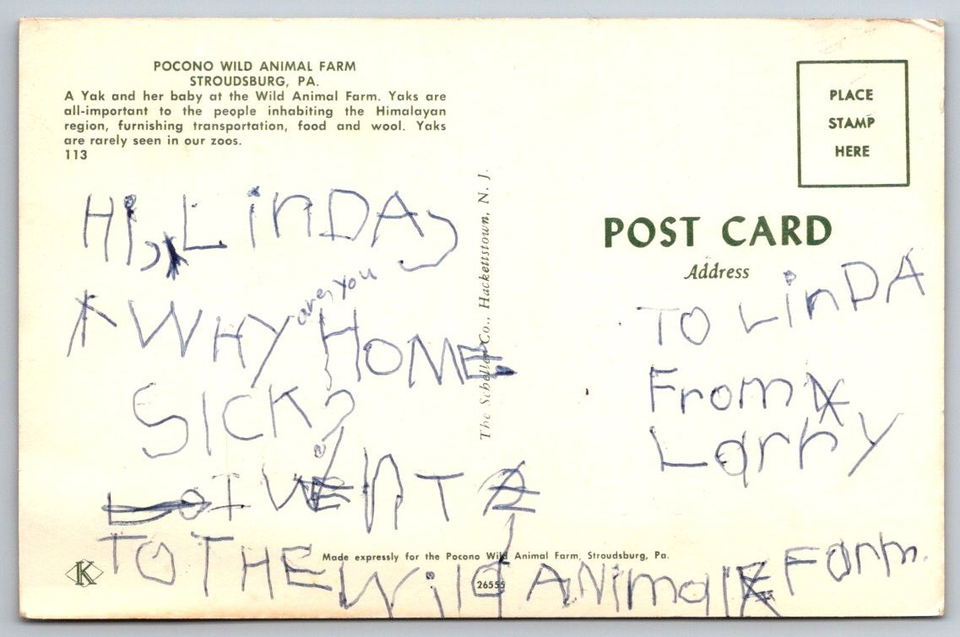 POCONO WILD ANIMAL FARM
STROUDSBURG, PA.
A Yak and her baby at the Wild Animal Farm. Yaks are
all-important to the people inhabiting the Himalayan
region, furnishing transportation, food and wool. Yaks
are rarely seen in our zoos.
113
Hi, LinDA,
are you
WHY HOME
SICK?
I WENT
TO THE Wild ANimal Farm.
The Scheller Co., Hackettstown, N. J.
PLACE
STAMP
HERE
POST CARD
Address
TO LinDA
From
Larry
Made expressly for the Pocono Wild Animal Farm, Stroudsburg, Pa.
K
26555